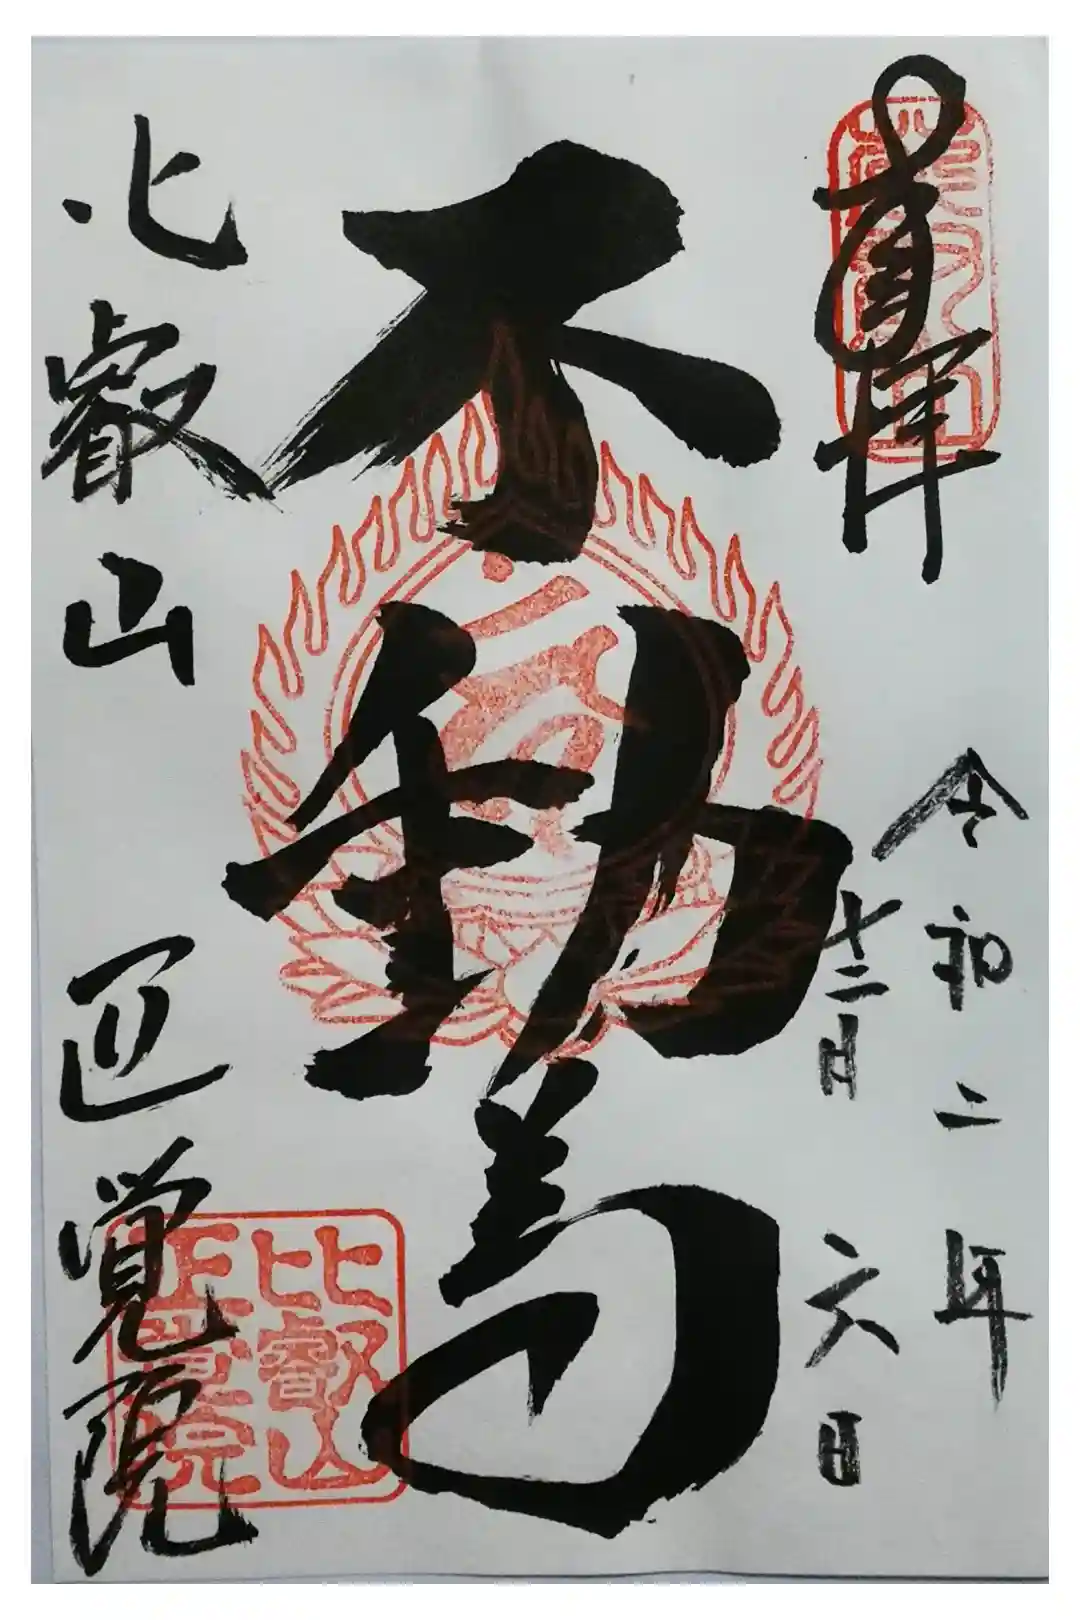 奉拝
令和二年
十二月六日
不動尊
比叡山
正覚院
比叡山
正覚院